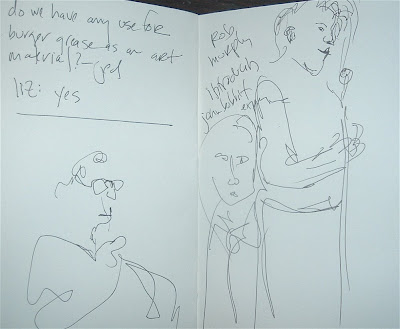 do we have any use for
burger grease as an art
material? - jed
liz: yes
rob
murphy
john